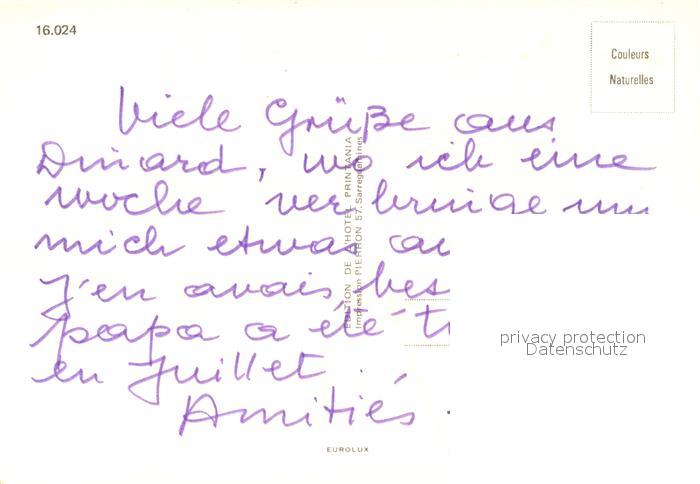 16.024
Couleurs
Naturelles
Viele Grüße aus
Dinard, wo ich eine
woche verbringe um
mich etwas
J'en avais
papa a été
en Juillet.
Amitiés
EDITION DE L'HOTEL PRINTANIA
Impression PIERRON 57. Sarreguemines
privacy protection
Datenschutz
EUROLUX